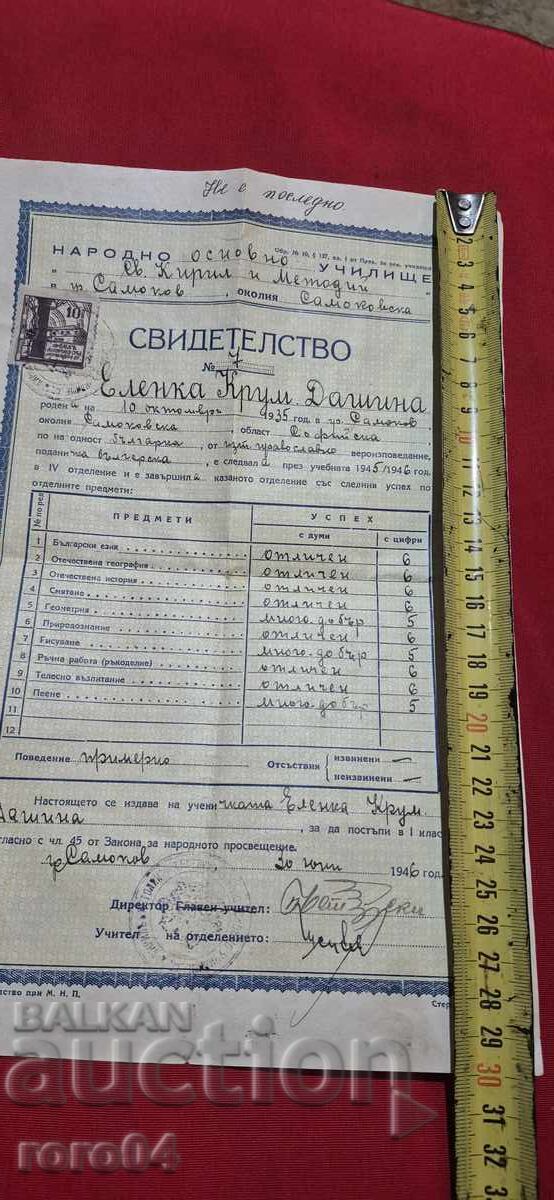 Не е последно
Обр. № 10, § 127, ал. 1 от Прав. за осн. училища
НАРОДНО основно УЧИЛИЩЕ
„Св. Кирил и Методий“
в гр. Самоков, околия Самоковска
10
СВИДЕТЕЛСТВО
№ 7
Еленка Крум. Дашина
родена на 10 октомврь 1935 год. в гр. Самоков
околия Самоковска, област Софийска
по народност българка, от изт. православно вероизповедание,
поданица българска, е следвала през учебната 1945/1946 год.
в IV отделение и е завършила казаното отделение със следния успех по
отделните предмети:
№ по ред
ПРЕДМЕТИ
УСПЕХ
с думи
с цифри
1 Български език отличен 6
2 Отечествена география отличен 6
3 Отечествена история отличен 6
4 Смятане отличен 6
5 Геометрия много добър 5
6 Природознание отличен 6
7 Рисуване много добър 5
8 Ръчна работа (ръкоделие) отличен 6
9 Телесно възпитание отличен 6
10 Пеене много добър 5
11
12
Поведение примерно Отсъствия извинени —
неизвинени —
Настоящето се издава на ученичката Еленка Крум.
Дашина, за да постъпи в I клас
съгласно с чл. 45 от Закона за народното просвещение.
гр. Самоков 30 юни 1946 год.
Директор Главен учител:
Учител на отделението:
при М. Н. П.
2 3 4 5 6 7 8 9 10 11 12 13 14 15 16 17 18 19 20 21 22 23 24 25 26 27 28 29 30 31 32
BALKAN
auction
roro04